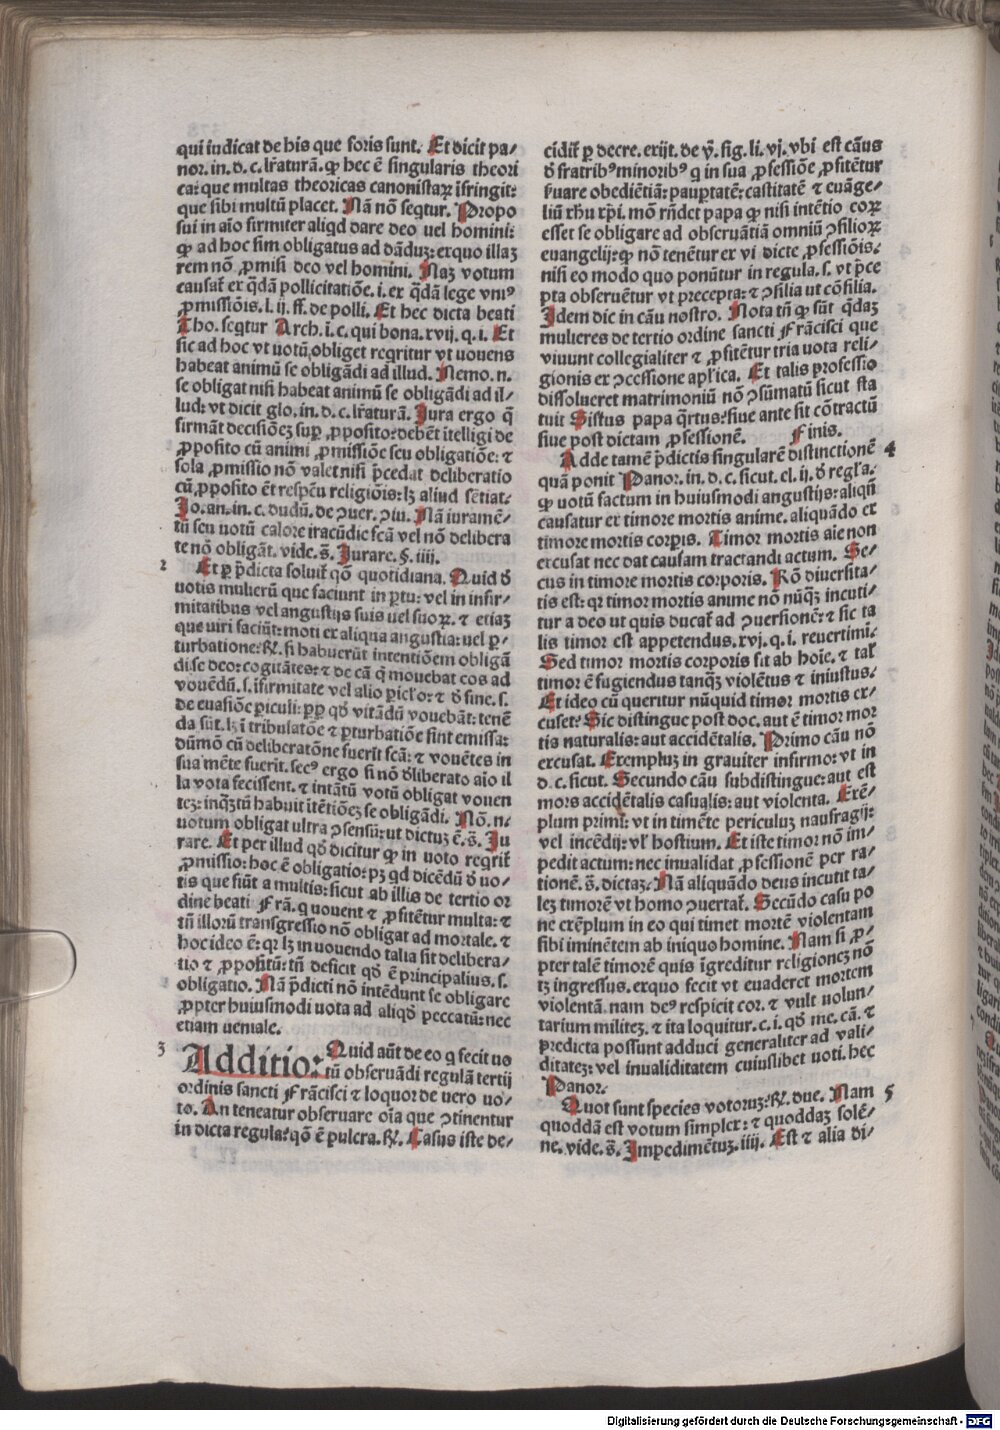 qui iudicat de his que foris sunt. Et dicit pa/
nor. in. d. c. lr̄aturā. ꝙ hec ē singularis theori
ca: que multas theoricas canonistaꝝ īfringit:
que sibi multū placet. Nā nō seqtur. Propo
sui in aīo firmiter aliqd dare deo uel homini:
ꝙ ad hoc sim obligatus ad dāduꝫ: ex quo illaꝫ
rem nō ꝓmisi deo vel homini. Naꝫ votum
causat̄ ex q̄dā pollicitatiōe. i. ex q̄dā lege vniꝰ
ꝓmissiōis. l. ij. ff. de polli. Et hec dicta beati
Tho. seqtur Arch. i. c. qui bona. xvij. q. i. Et
sic ad hoc vt uotū obliget reqritur vt uouens
habeat animū se obligādi ad illud. Nemo. n.
se obligat nisi habeat animū se obligādi ad il/
lud: vt dicit glo. in. d. c. lr̄aturā. Jura ergo q̄
firmāt decisiōeꝫ suꝑ ꝓposito: debēt ītelligi de
ꝓposito cū animi ꝓmissiōe seu obligatiōe: ⁊
sola ꝓmissio nō valet nisi p̄cedat deliberatio
cū ꝓposito ēt respc̄u religiōis: lꝫ aliud sētiat.
Jo. an. in. c. dudū. de ꝯuer. ꝯiu. Nā iuramē/
tū seu uotū calore iracūdie fcā vel nō delibera
te nō obligāt. vide. s̄. Jurare. §. iiij.
2 Et ꝑ p̄dicta soluit̄ qō quotidiana. Quid ď
uotis mulierū que faciunt in ꝑtu: vel in infir/
mitatibus vel angustijs suis vel suoꝝ. ⁊ etiaꝫ
que uiri faciūt: moti ex aliqua angustia: uel ꝑ/
turbatione: ꝶ. si habuerūt intentiōem obligā
di se deo: cogitātes: ⁊ de cā q̄ mouebat eos ad
vouēdū. s. īfirmitate vel alio pictˡo: ⁊ ď fine. s.
de euasiōe ꝑiculi: ꝓꝑ qď vitādū vouebāt: tenē
da sūt. lꝫ ī tribulatōe ⁊ ꝑturbatiōe sint emissa:
dūmō cū deliberatōne fuerīt fcā: ⁊ vouētes in
sua mēte fuerīt. secꝰ ergo si nō ďliberato aīo il
la vota fecissent. ⁊ intātū votū obligat vouen
teꝫ: inqꝫtū habuit ītētiōeꝫ se obligādi. Nō. n.
uotum obligat ultra ꝯsensū: ut dictuꝫ ē. s̄. Ju
rare. Et per illud qď dicitur ꝙ in uoto reqrit̄
ꝓmissio: hoc ē obligatio: pꝫ qd dicēdū ď uo/
tis que fiūt a multis: sicut ab illis de tertio or
dine beati Frā. q uouent ⁊ ꝓfitētur multa: ⁊
tn̄ illorū transgressio nō obligat ad mortale. ⁊
hoc ideo ē: qꝛ lꝫ in uouendo talia sit delibera/
tio ⁊ ꝓpositū: tn̄ deficit qď ē principalius. s.
obligatio. Nā p̄dicti nō intēdunt se obligare
ꝓpter huiusmodi uota ad aliqď peccatū: nec
etiam ueniale.
3 Additio: Quid aūt de eo q fecit uo
tū obseruādi regulā tertij
ordinis sancti Frācisci ⁊ loquor de uero uo/
to. An teneatur obseruare oīa que ꝯtinentur
in dicta regula: qō ē pulcra. ꝶ. Casus iste de/
cidit̄ ꝑ decre. exijt. de ꝟ. sig. li. vj. vbi est cāus
ď fratribꝰ minoribꝰ q in sua ꝓfessiōe ꝓfitētur
ẜuare obediētiā: pauꝑtatē: castitatē ⁊ euāge/
liū rh̄u xp̄i. mō rn̄det papa ꝙ nisi intētio eoꝝ
esset se obligare ad obseruātiā omniū ꝯsilioꝝ
euangelij: ꝙ nō tenētur ex vi dicte ꝓfessiōis:
nisi eo modo quo ponūtur in regula. s. vt p̄ce
pta obseruētur vt precepta: ⁊ ꝯsilia ut cōsilia.
Idem dic in cāu nostro. Nota tn̄ ꝙ sūt q̄daꝫ
mulieres de tertio ordine sancti Frācisci que
viuunt collegialiter ⁊ ꝓfitētur tria uota reli/
gionis ex ꝯcessione apl̄ica. Et talis professio
dissolueret matrimoniū nō ꝯsūmatū sicut sta
tuit Sistus papa q̄rtus: siue ante sit cōtractū
siue post dictam ꝓfessionē. Finis.
Adde tamē p̄dictis singularē distinctionē 4
quā ponit Panor. in. d. c. sicut. el. ij. ď reglˡa.
ꝙ uotū factum in huiusmodi angustijs: aliqn̄
causatur ex timore mortis anime. aliquādo ex
timore mortis corꝑis. Timor mortis aīe non
excusat nec dat causam tractandi actum. Se/
cus in timore mortis corporis. Rō diuersita/
tis est: qꝛ timor mortis anime nō nūqꝫ incuti/
tur a deo ut quis ducat̄ ad ꝯuersionē: ⁊ sic ta
lis timor est appetendus. xvj. q. i. reuertimī.
Sed timor mortis corporis sit ab hoīe. ⁊ talˡ
timor ē fugiendus tanqꝫ violētus ⁊ iniustus.
Et ideo cū queritur nūquid timor mortis ex/
cuset: Sic distingue post doc. aut ē timor mor
tis naturalis: aut accidētalis. Primo cāu nō
excusat. Exempluꝫ in grauiter infirmo: vt in
d. c. sicut. Secundo cāu subdistingue: aut est
mors accidētalis casualis: aut violenta. Exē/
plum primi: vt in timēte periculuꝫ naufragij:
vel incēdij: vlˡ hostium. Et iste timor nō im/
pedit actum: nec inualidat ꝓfessionē per ra/
tionē. s̄. dictaꝫ. Nā aliquādo deus incutit ta/
leꝫ timorē vt homo ꝯuertat̄. Secūdo casu po
ne exēplum in eo qui timet mortē violentam
sibi iminētem ab iniquo homine. Nam si ꝓ/
pter talē timorē quis īgreditur religioneꝫ nō
tꝫ ingressus. ex quo fecit vt euaderet mortem
violentā. nam deꝰ respicit cor. ⁊ vult uolun/
tarium militeꝫ. ⁊ ita loquitur. c. i. qď me. cā. ⁊
predicta possunt adduci generaliter ad vali/
ditateꝫ: vel inualiditatem cuiuslibet uoti. hec
Panor.
Quot sunt species votoruꝫ: ꝶ. due. Nam 5
quoddā est votum simplex: ⁊ quoddaꝫ solē/
ne. vide. s̄. Impedimētuꝫ. iiij. Est ⁊ alia di/
Digitalisierung gefördert durch die Deutsche Forschungsgemeinschaft - DFG